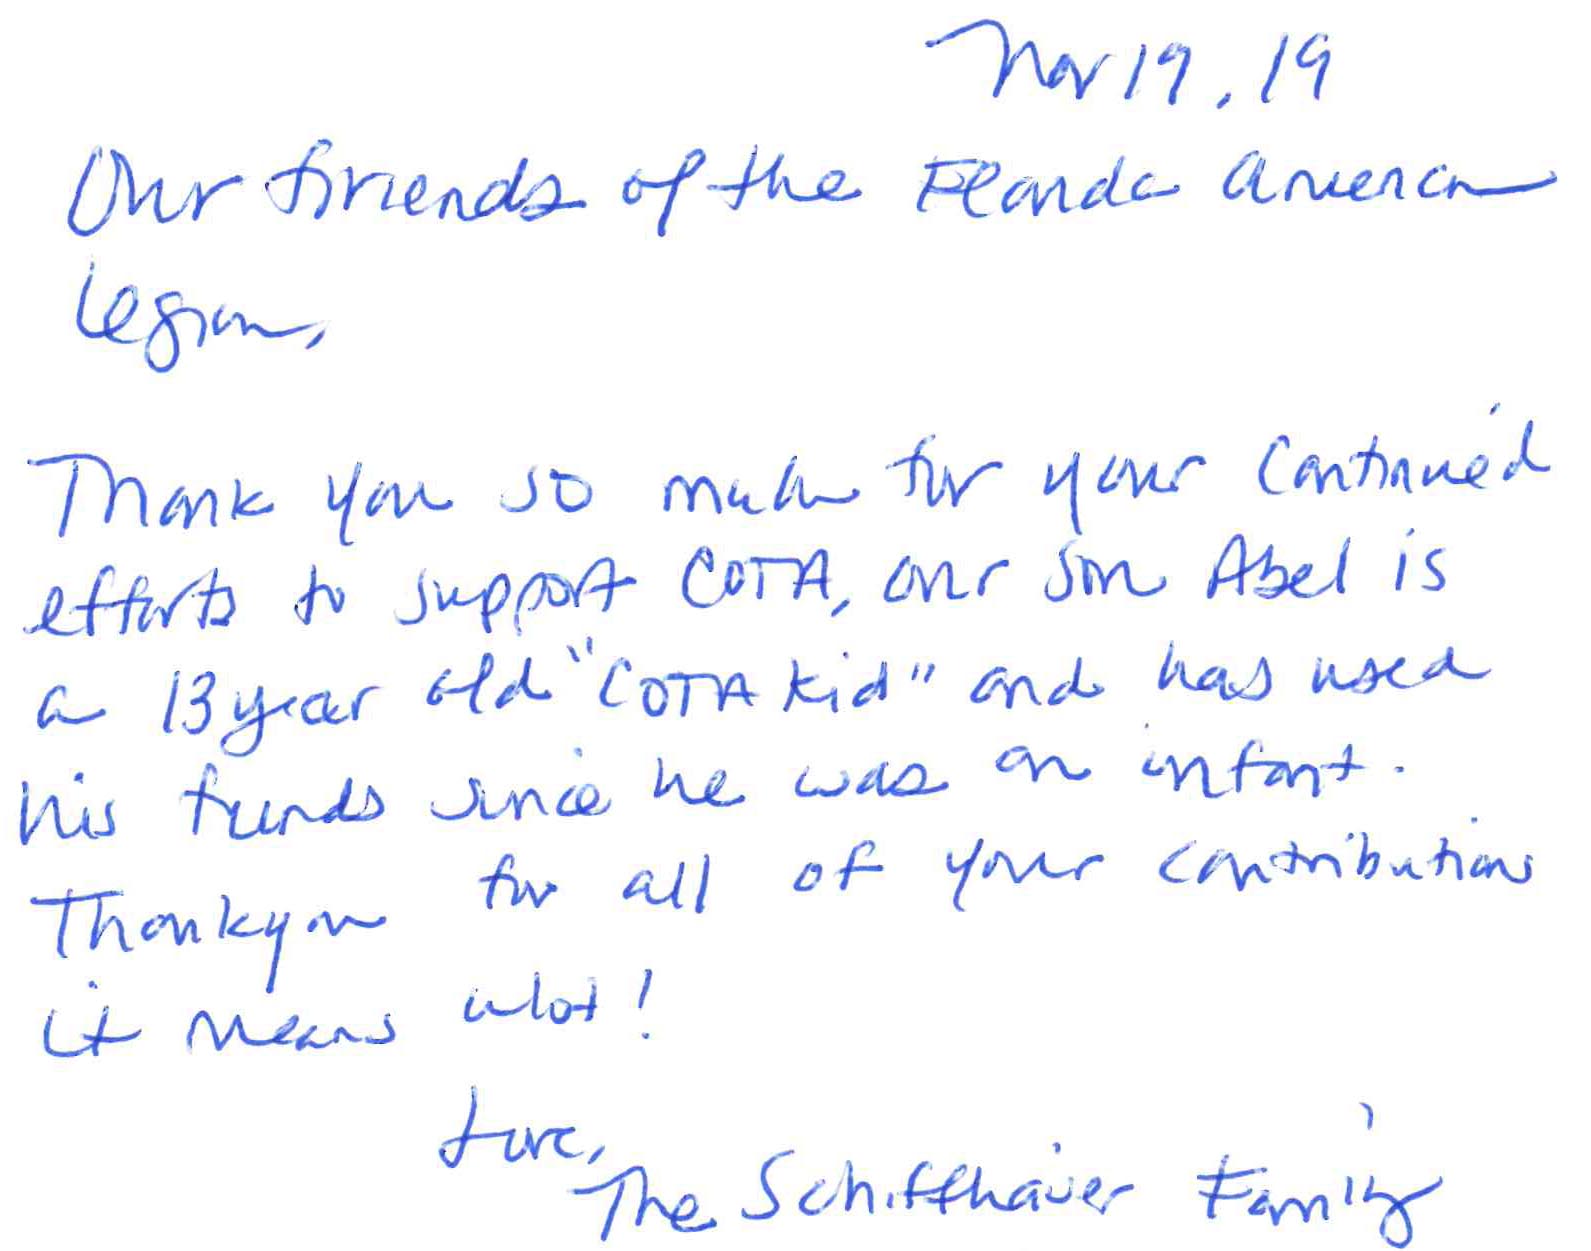 Nov 19, 19
Our friends of the Florida American
Legion,
Thank you so much for your continued
efforts to support COTA, our son Abel is
a 13 year old "COTA Kid" and has used
his funds since he was an infant.
Thankyou for all of your contributions
it means alot!
Love,
The Schiffhauer Family